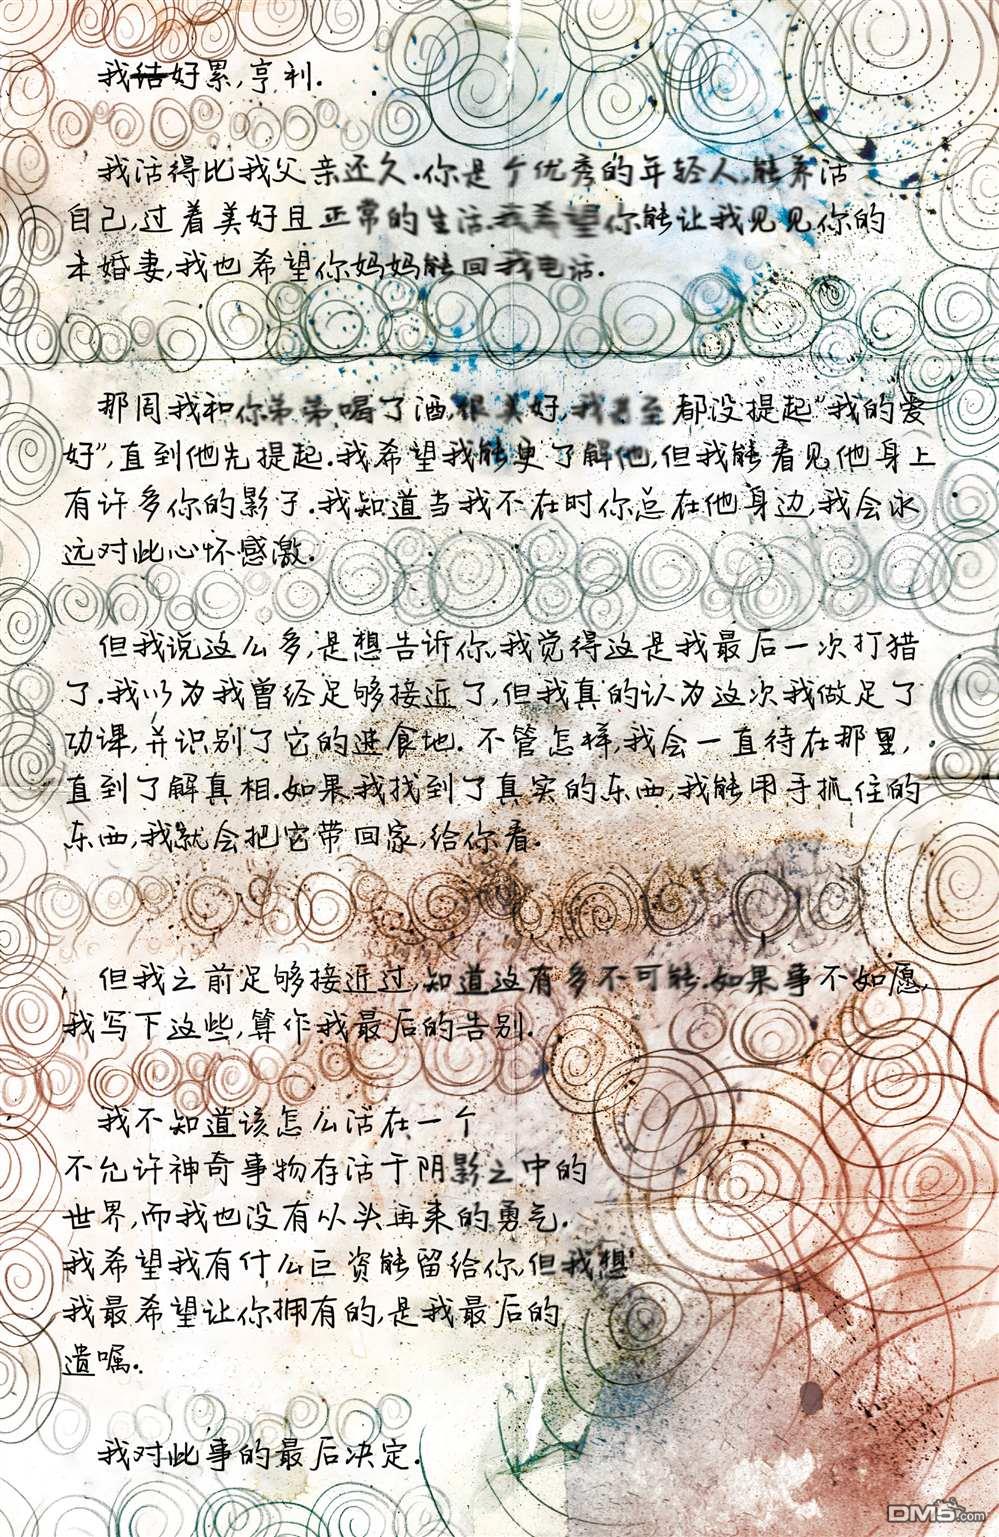 我结好累,亨利.
我活得比我父亲还久.你是个优秀的年轻人,能养活
自己,过着美好且正常的生活.我希望你能让我见见你的
未婚妻,我也希望你妈妈能回我电话.
那周我和你弟弟喝了酒,很美好,我甚至都没提起“我的爱
好”,直到他先提起.我希望我能更了解他,但我能看见他身上
有许多你的影子.我知道当我不在时你总在他身边,我会永
远对此心怀感激.
但我说这么多,是想告诉你,我觉得这是我最后一次打猎
了.我以为我曾经足够接近了,但我真的认为这次我做足了
功课,并识别了它的进食地.不管怎样,我会一直待在那里,
直到了解真相.如果我找到了真实的东西,我能用手抓住的
东西,我就会把它带回家,给你看.
但我之前足够接近过,知道这有多不可能.如果事不如愿,
我写下这些,算作我最后的告别.
我不知道该怎么活在一个
不允许神奇事物存活于阴影之中的
世界,而我也没有从头再来的勇气.
我希望我有什么巨资能留给你,但我想
我最希望让你拥有的,是我最后的
遗嘱.
我对此事的最后决定.
DM5.com